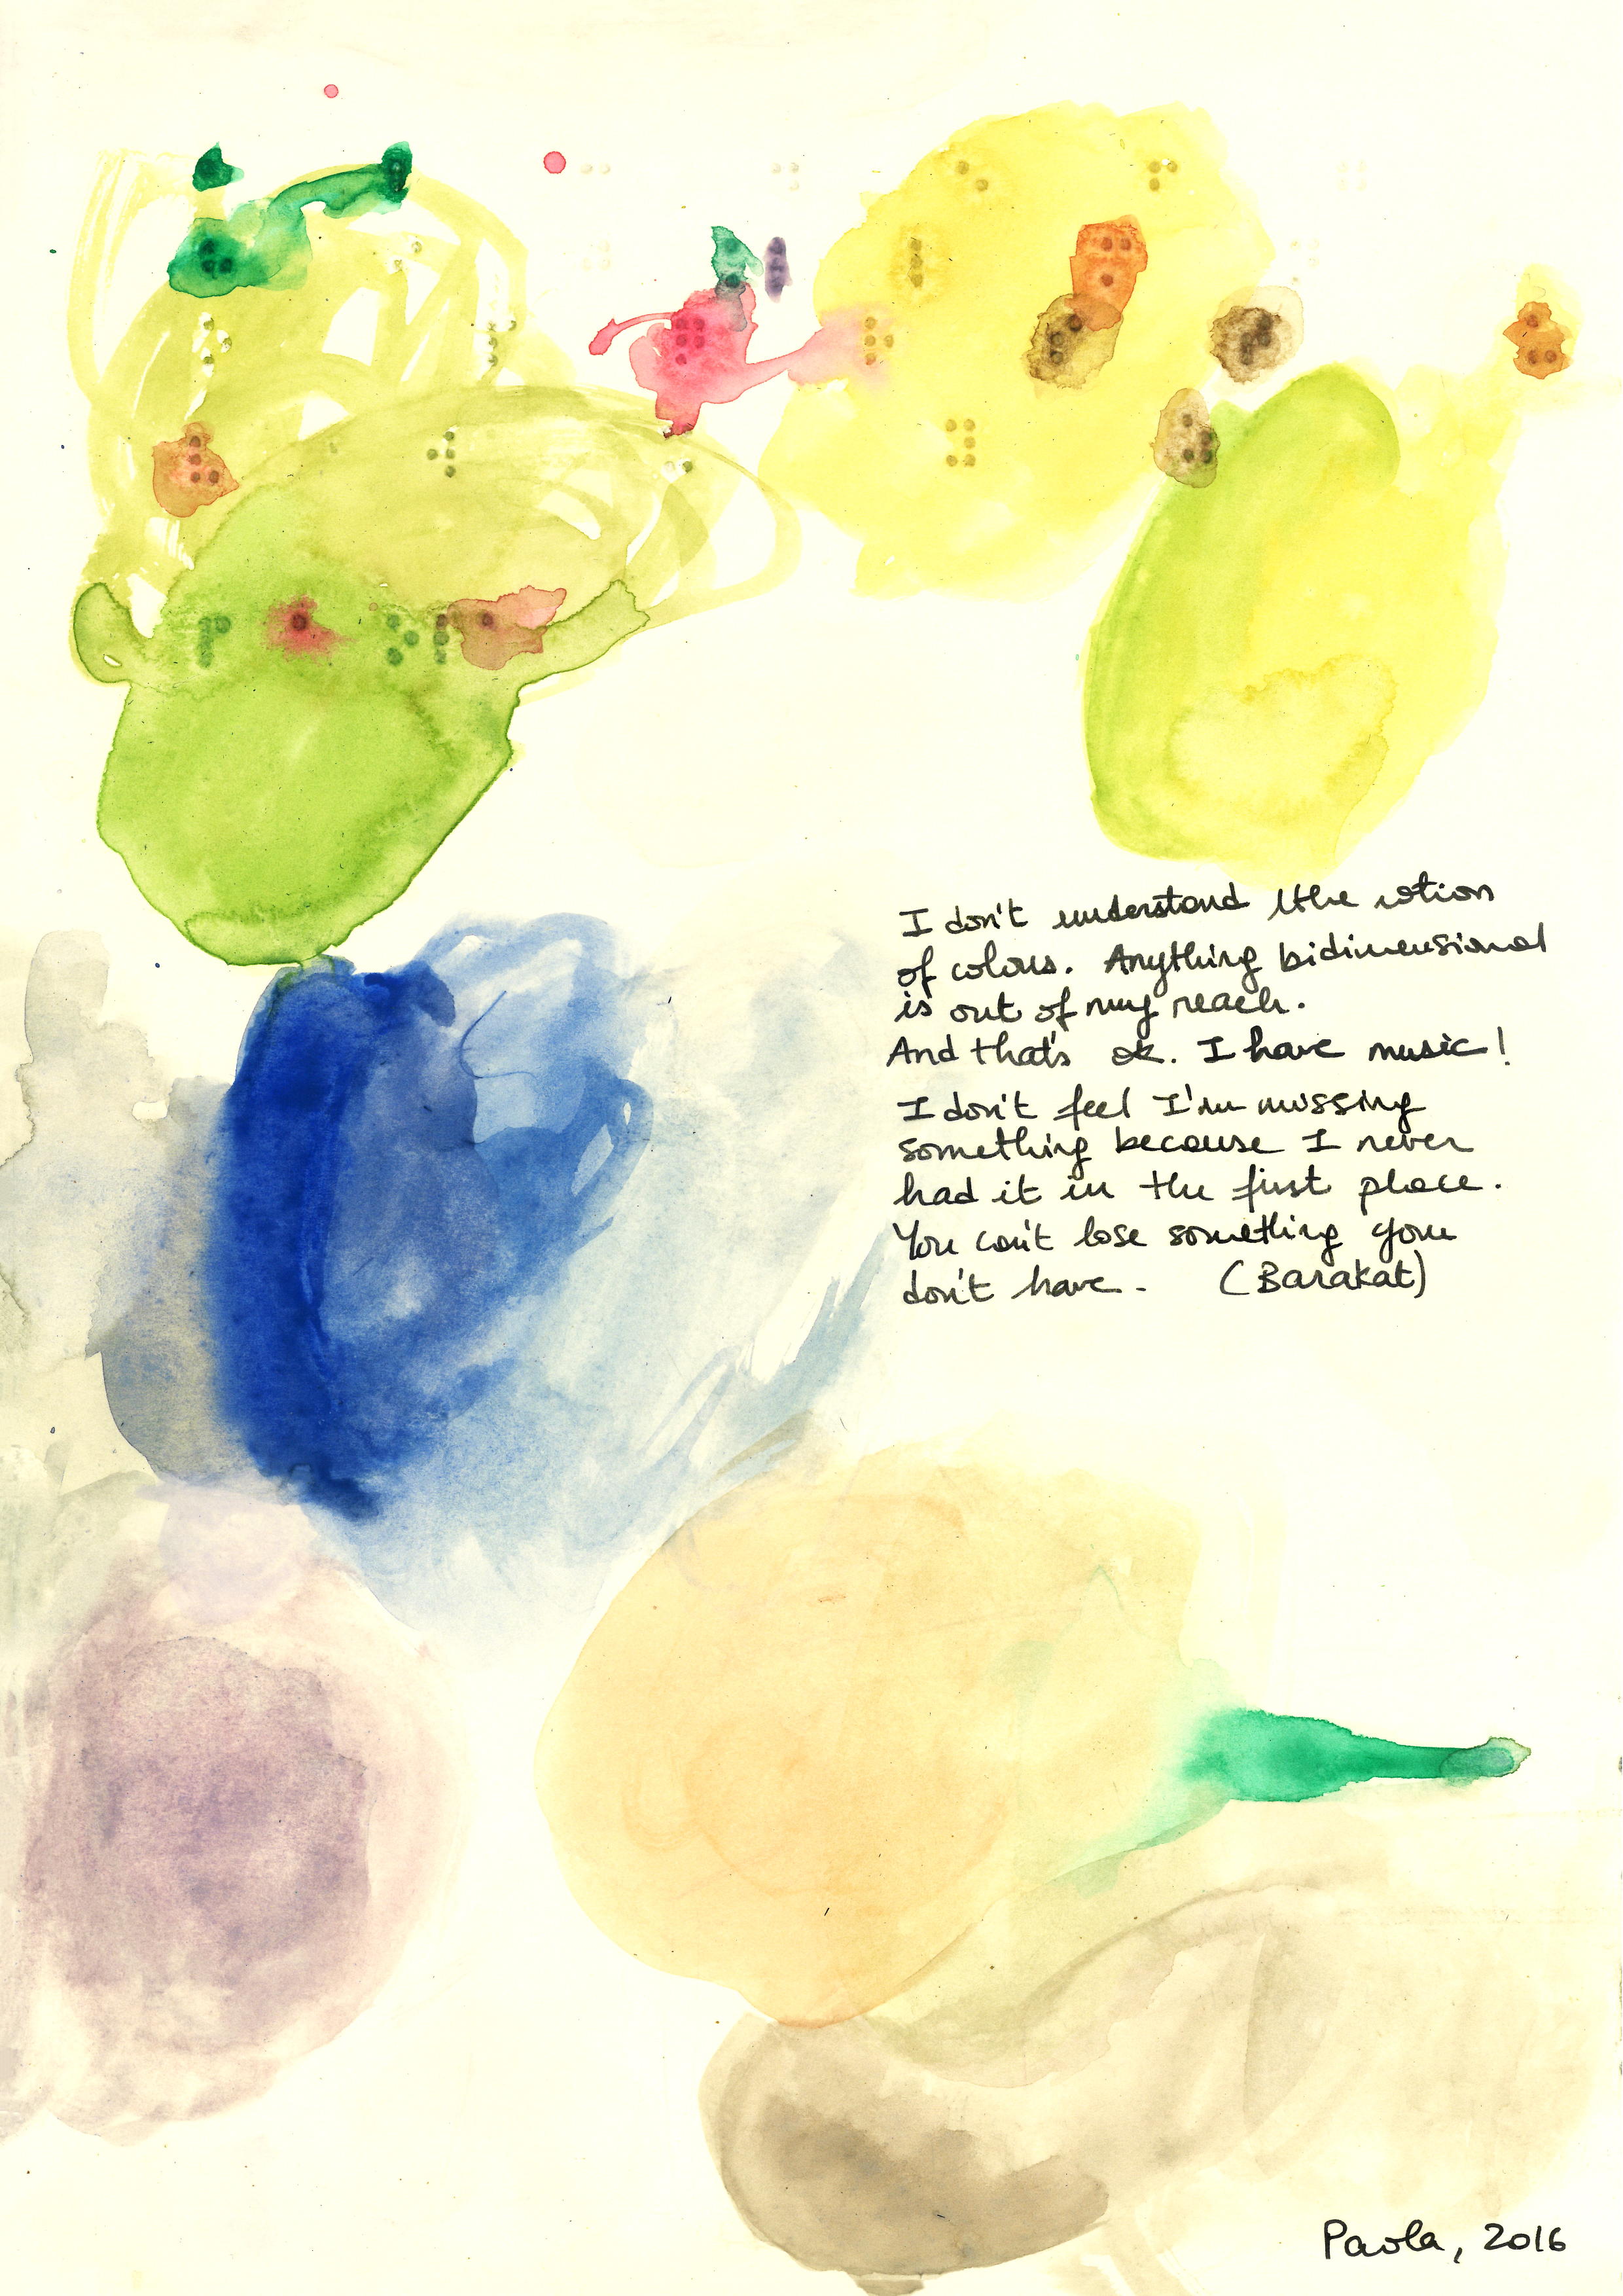 I don't understand the notion
of colours. Anything bidimensional
is out of my reach.
And that's ok. I have music!
I don't feel I'm missing
something because I never
had it in the first place.
You can't lose something you
don't have. (Barakat)
Paola, 2016